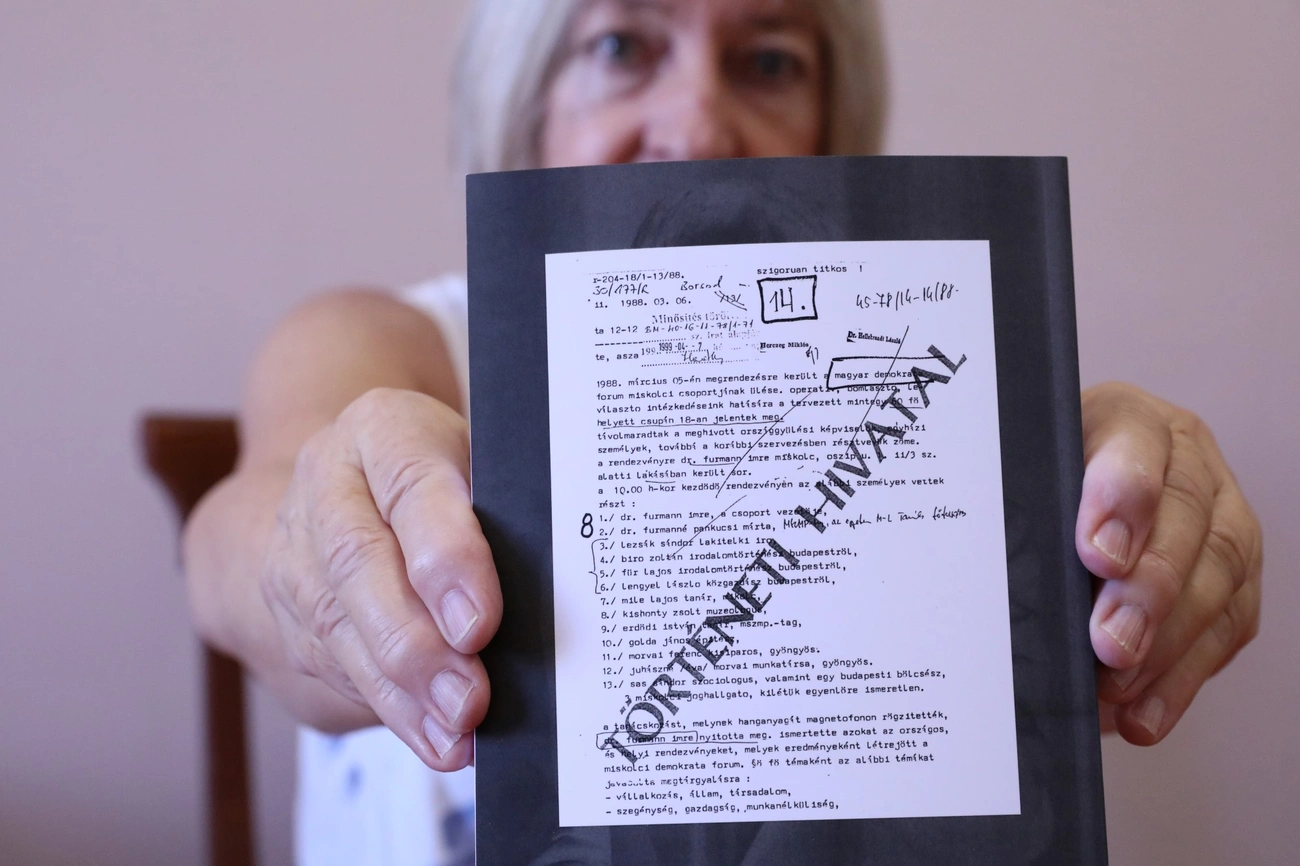 r-204-18/1-13/88. szigoruan titkos !
30/177/K Borsod 14. 45-78/14-14/88.
11. 1988. 03. 06.
Minősítés töröl
ta 12-12 BM-40-16-11-78/1-71
sz. irat alapján Dr. Hellebrandt László
te, asza 1999 -04- 7 Herczeg Miklós
1988. március 05-én megrendezésre került a magyar demokra
forum miskolci csoportjának ülése. operatív, bomlasztó, le
választo intézkedéseink hatására a tervezett mintegy 60 fö
helyett csupán 18-an jelentek meg.
távolmaradtak a meghivott országgyülési képviselök, egyházi
személyek, továbbá a korábbi szervezésben résztvevök zöme.
a rendezvényre dr. furmann imre miskolc, oszip u. 11/3 sz.
alatti lakásában került sor.
a 10.00 h-kor kezdödö rendezvényen az alábbi személyek vettek
részt :
1./ dr. furmann imre, a csoport vezetöje,
8 2./ dr. furmanné pankucsi márta,
3./ lezsák sándor lakitelki iro,
4./ biro zoltán irodalomtörténész budapeströl,
5./ für lajos irodalomtörténész budapeströl,
6./ lengyel lászlo közgazdász budapeströl,
7./ mile lajos tanár, miskolc,
8./ kishonty zsolt muzeologus,
9./ erdödi istván tanár, mszmp.-tag,
10./ golda jános épitész,
11./ morvai ferenc kisiparos, gyöngyös.
12./ juhászné /éva/ morvai munkatársa, gyöngyös.
13./ sas sándor szociologus, valamint egy budapesti bölcsész,
3 miskolci joghallgato, kilétük egyenlöre ismeretlen.
a tanácskozást, melynek hanganyagát magnetofonon rögzitették,
dr. furmann imre nyitotta meg. ismertette azokat az orszígos,
és helyi rendezvényeket, melyek eredményeként létrejött a
miskolci demokrata forum. §ö fö témaként az alábbi témákat
javasolta megtárgyalásra :
- vállalkozás, állam, társadalom,
- szegénység, gazdagság, munkanélküliség,
TÖRTÉNETI HIVATAL